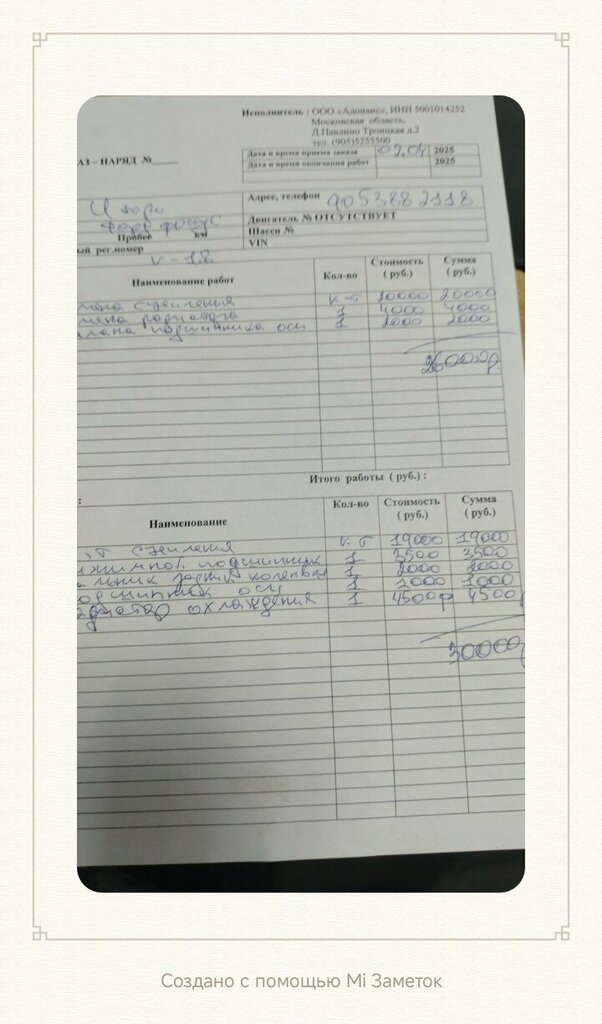 Исполнитель : ООО «Адонис», ИНН 5001014252
Московская область,
Д.Павлино Троицкая д.2
тел. (905)5255500
АЗ – НАРЯД №
Дата и время приема заказа 02.04 2025
Дата и время окончания работ 2025
Адрес, телефон 9053882118
Форд фокус
Двигатель № ОТСУТСТВУЕТ
Пробег км
Шасси №
ый рег.номер
VIN
V - 1.8
Наименование работ Кол-во Стоимость (руб.) Сумма (руб.)
мена сцепления к-т 20000 20000
мена радиатора 1 4000 4000
мена подшипника оси 1 2000 2000
26000р.
Итого работы ( руб.) :
:
Наименование Кол-во Стоимость (руб.) Сумма (руб.)
т сцепления к-т 19000 19000
жимной подшипник 1 3500 3500
льник задний коленвал 1 2000 2000
одшипник оси 1 1000 1000
адиатор охлаждения 1 4500р 4500
30000р
Создано с помощью Mi Заметок